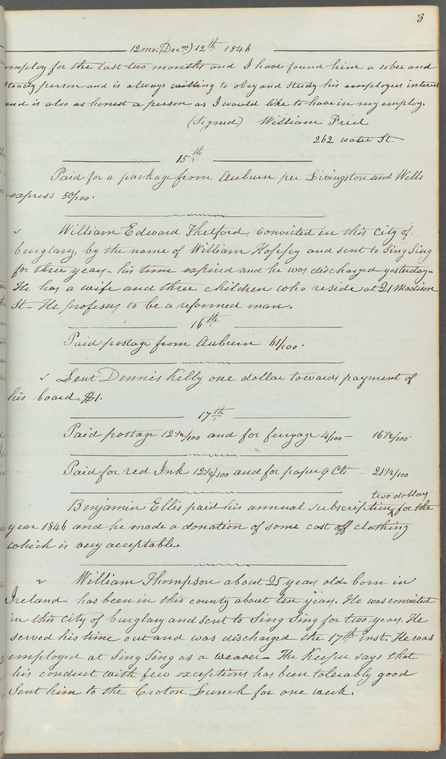 3
12mo:(Decm) 12th 1846
employ for the last two months and I have found him a sober and
steady person and is always willing to obey and study his employers interest
and is also as honest a person as I would like to have in my employ.
(Signed) William Friel
262 water St.
15th
Paid for a package from Auburn per Livingston and Wells
express 50/100.
William Edward Thetford, convicted in this City of
burglary by the name of William Hoppey and sent to Sing Sing
for three years - his time expired and he was discharged yesterday -
He has a wife and three children who reside at 21 Madison
St. - He professes to be a reformed man.
16th
Paid postage from Auburn 61/100.
Lent Dennis Kelly one dollar towards payment of
his board $1.
17th
Paid postage 12 1/2/100 and for feryage 4/100 - 16 1/2/100
Paid for red Ink 12 1/2/100 and for paper 9 Cts - 21 1/2/100
two dollars
Benjamin Ellis paid his annual subscription for the
year 1846 and he made a donation of some cast off clothing
which is very acceptable
William Thompson about 25 years old born in
Ireland has been in this county about ten years. He was convicted
in this city of burglary and sent to Sing Sing for two years. He
served his time out and was discharged the 17th inst. He was
employed at Sing Sing as a weaver - The Keeper says that
his conduct with few exceptions has been tolerably good
Sent him to the Croton Lunch for one week.